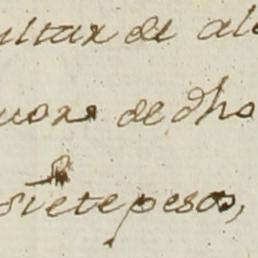 ultar de al
de dho
siete pesos,